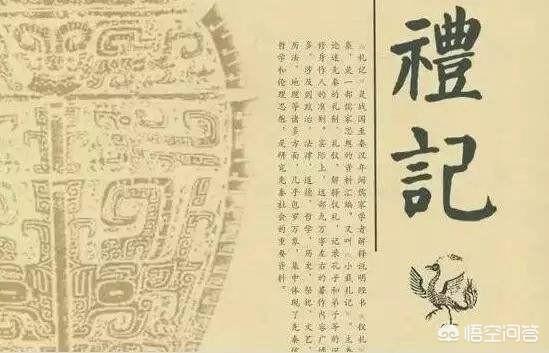 禮記
《礼记》是战国至秦汉年间儒家学者解释说明经书《仪礼》
象，是一部儒家思想的资料汇编，又叫《小戴礼记》，主要
论述先秦的礼制、礼仪，解释仪礼，记录孔子和弟子等的问
修身作人的准则。实际上，这部九万字左右的著作内容广博
多，涉及到政治、法律、道德、哲学、历史、祭祀、文艺、
历法、地理等诸多方面，几乎包罗万象，集中体现了先秦儒
哲学和伦理思想，是研究先秦社会的重要资料。
悟空问答